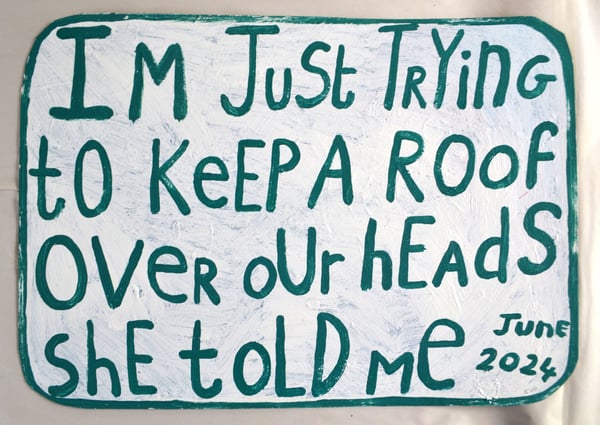 IM JuSt TRYinG
tO KeEP A ROOF
OVeR oUr hEAdS
shE toLD Me
JunE
2024
SW